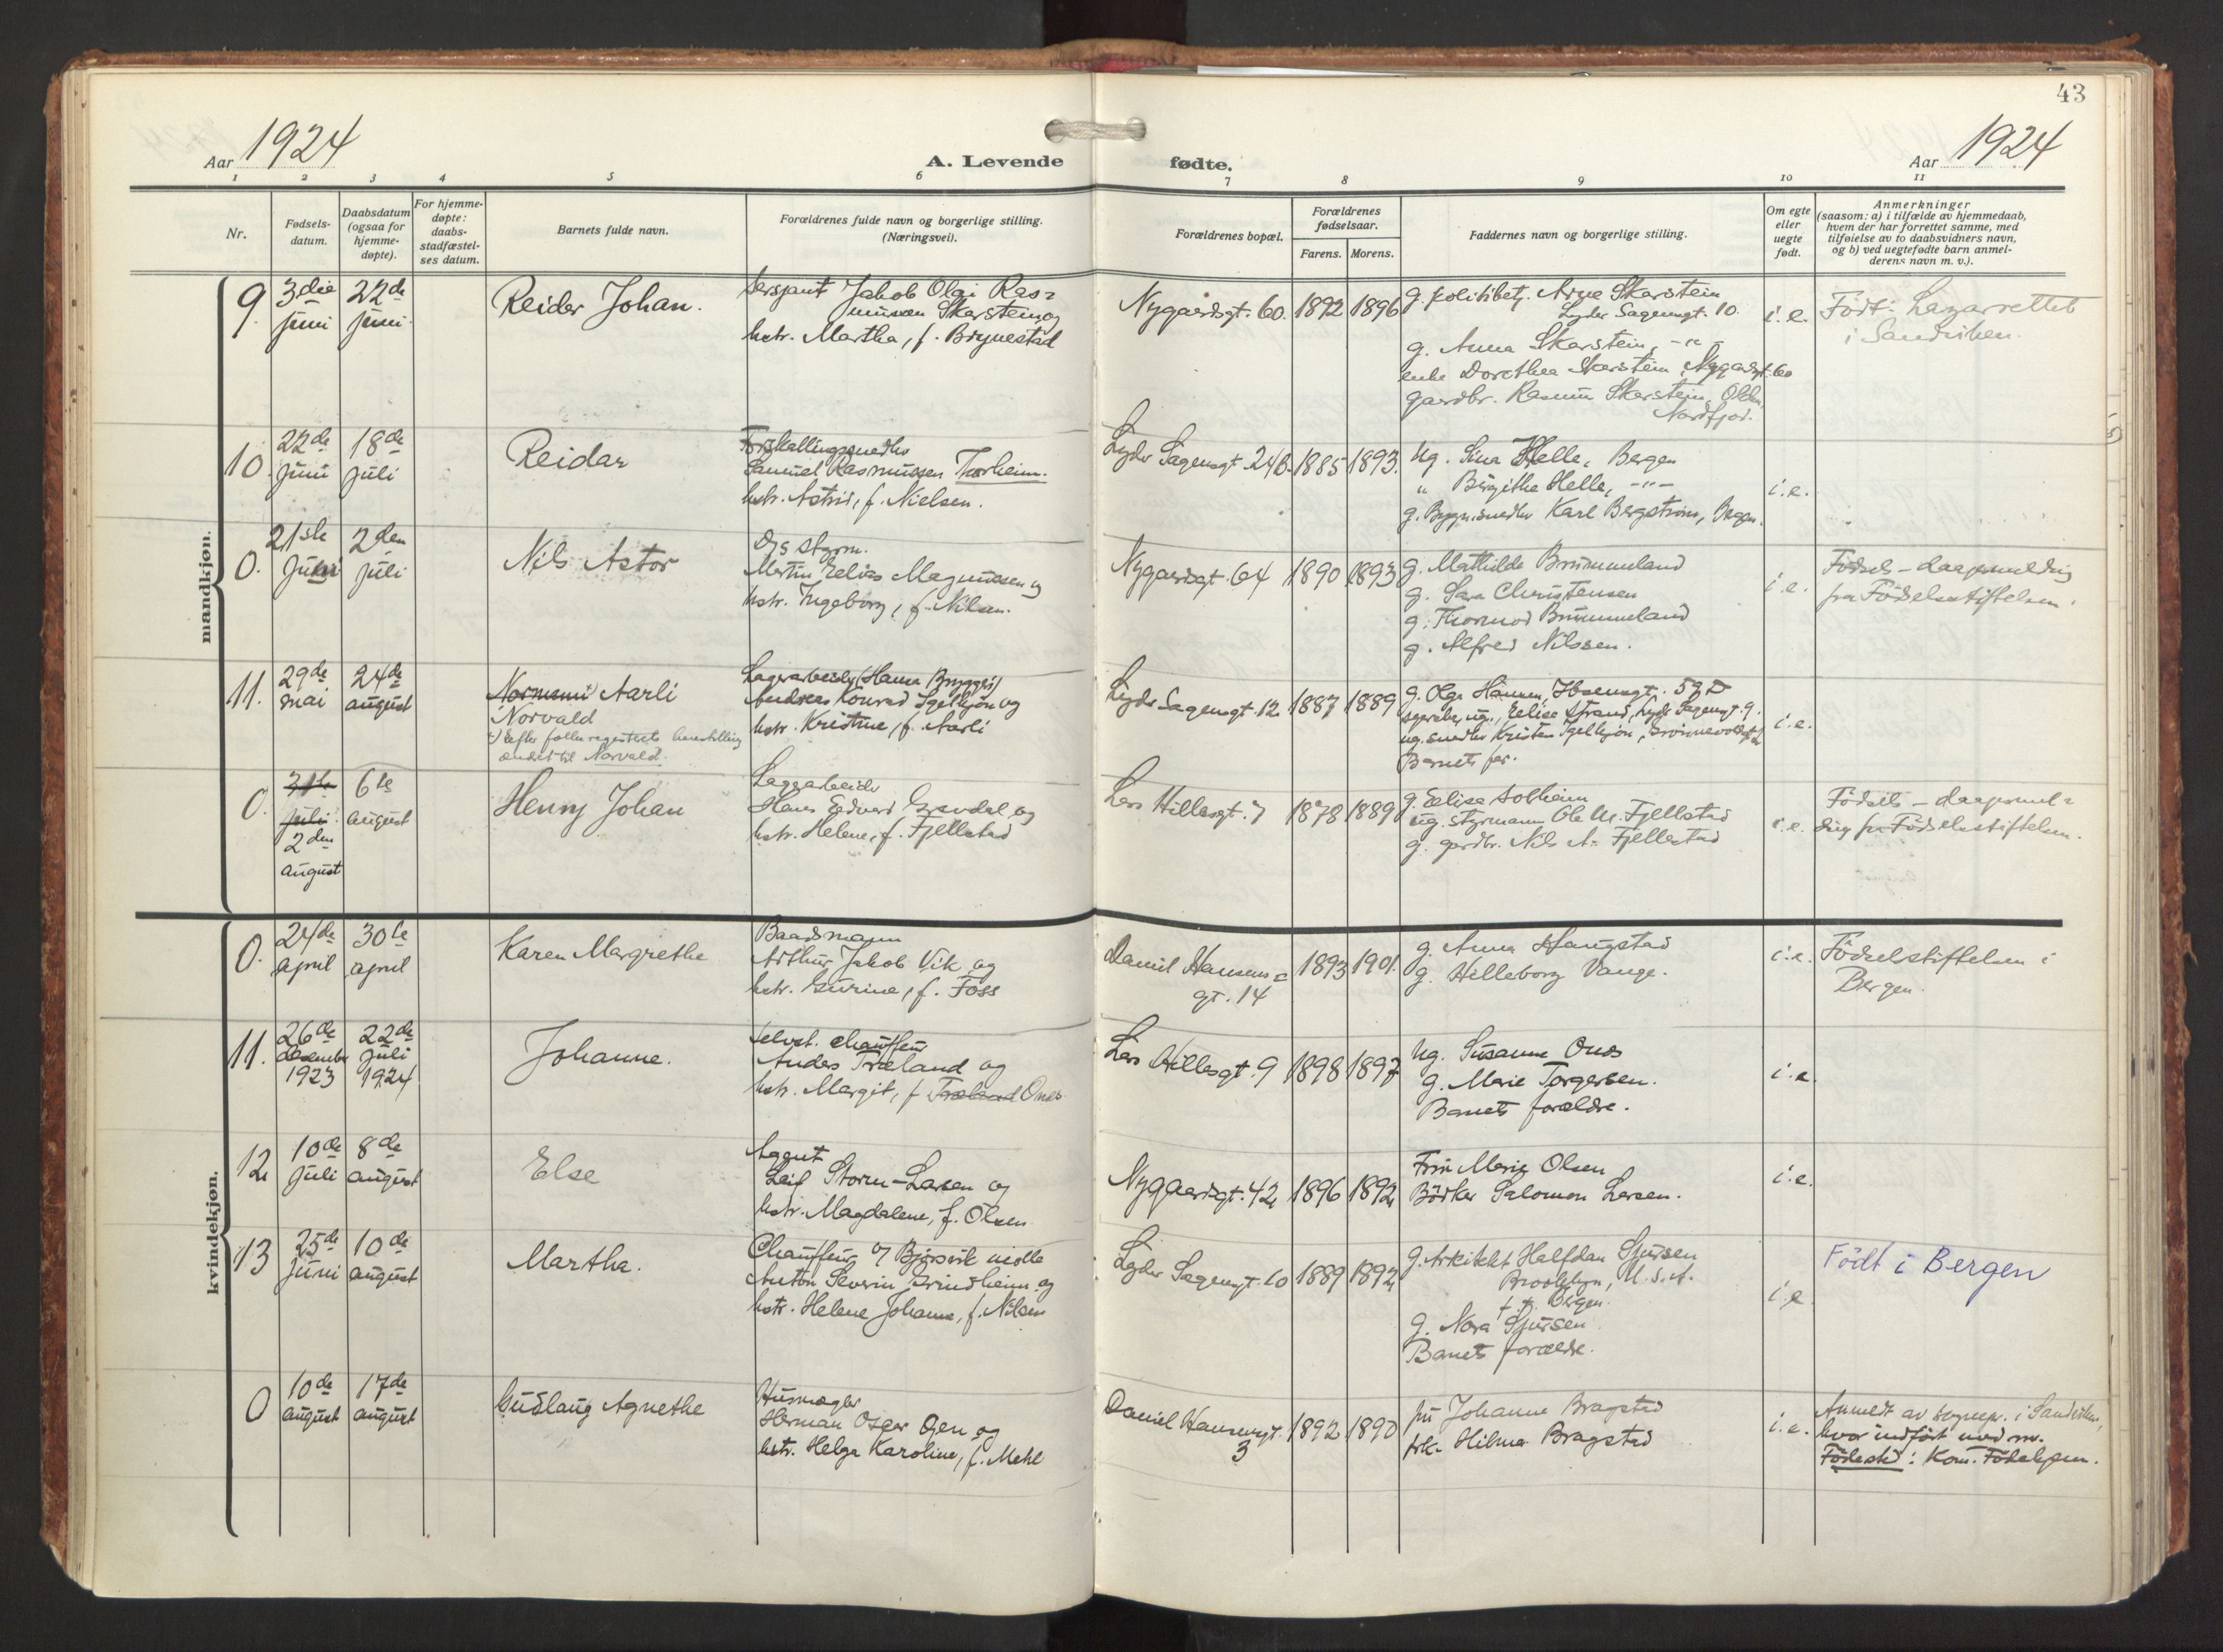 43
Aar 1924
A. Levende
fødte.
Aar 1924
1 2 3 4 5 6 7 8 9 10 11
Nr.
Fødsels-
datum.
Daabsdatum
(ogsaa for
hjemme-
døpte).
For hjemme-
døpte:
daabs-
stadfæstel-
ses datum.
Barnets fulde navn.
Forældrenes fulde navn og borgerlige stilling.
(Næringsvei).
Forældrenes bopæl.
Forældrenes
fødselsaar.
Farens. Morens.
Faddernes navn og borgerlige stilling.
Om egte
eller
uegte
født.
Anmerkninger
(saasom: a) i tilfælde av hjemmedaab,
hvem der har forrettet samme, med
tilføielse av to daabsvidners navn,
og b) ved uegtefødte barn anmel-
derens navn m. v.).
mandkjøn.
9.
3die
juni
22de
juni
Reidar Johan.
Sersjant Jakob Olai Ras=
mussen Skarstein og
hstr. Martha, f. Brynestad
Nygaardsgt. 60.
1892 1896
g. politibetj. Arne Skarstein
Lyder Sagensgt. 10.
g. Anna Skarstein, -"-
enke Dorothea Skarstein, Nygaardsgt. 60
gaardbr. Rasmus Skarstein, Olden
Nordfjord.
i.e.
Født: Lazarettet
i Sandviken.
10.
22de
juni
18de
juli
Reidar
Forskallingssnedker
Samuel Rasmussen Torheim.
hstr. Astrid, f. Nielsen.
Lyder Sagensgt. 24B.
1885 1893.
Ug. Sina Helle, Bergen
" Birgithe Helle, -"-
g. Bygn.snedker Karl Bergstrøm, Bergen.
i.e.
0.
21ste
juni
2den
juli
Nils Astor
D/s styrm.
Martin Elias Magnussen og
hstr. Ingeborg, f. Nilsen.
Nygaardsgt. 64
1890 1893
g. Mathilde Brummeland
g. Sara Christensen
g. Thormod Brummeland
g. Alfred Nilssen.
i.e.
Fødsels-daapsmelding
fra Fødselsstiftelsen.
11.
29de
mai
24de
august
Normann Aarli
Norvald
+) Efter folkeregisterets henstilling
endret til Norvald.
Lagerarbeider (Hansa Bryggeri)
Andreas Konrad Igelkjøn og
hstr. Kristine, f. Aarli
Lyder Sagensgt. 12
1887 1889
g. Olga Hansen, Ibsensgt. 59D
ug., Elise Strand, Lyder Sagensgt. 9.
ug. snedker Kristen Igelkjøn,
Barnets far.
i.e.
0.
31te
juli
2den
august
6te
august
Henry Johan
Laggarbeider
Hans Edvard Gravdal og
hstr. Helene, f. Fjellestad
Lars Hillesgt. 7
1878 1889
g. Elise Solheim
ug. styrmann Ole M. Fjellestad
g. gardbr. Nils A. Fjellestad
i.e.
Fødsels-daapsmel=
ding fra Fødselsstiftelsen.
kvindekjøn.
0.
24de
april
30te
april
Karen Margrethe
Baadsmann
Arthur Jakob Vik og
hstr. Gurine, f. Foss
Daniel Hansens=
gt. 14
1893 1901.
g. Anna Haugstad
g. Hilleborg Vange.
i.e.
Fødselstiftelsen i
Bergen.
11.
26de
desember
1923
22de
juli
1924
Johanne.
Selvst. chauffeur
Anders Træland og
hstr. Margit, f. Træland Onas
Lars Hillesgt. 9
1898 1897
Ug. Susanne Onas
g. Marie Torgersen.
Barnets forældre.
i.e.
12
10de
juli
8de
august
Else
Agent
Leif Storm-Larsen og
hstr. Magdalene, f. Olsen
Nygaardsgt. 42
1896 1892
Fru Marie Olsen
Bødker Salomon Larsen.
i.e.
13
25de
juni
10de
august
Martha.
Chauffeur v/ Bjørsvik mølle
Anton Severin Grindheim og
hstr. Helene Johanne, f. Nilsen
Lyder Sagensgt. 10
1889 1892
g. Arkitekt Halfdan Sjursen
Brooklyn, U.S.A.
f. t. Bergen.
g. Nora Sjursen
Barnets forældre.
i.e.
Født i Bergen
0
10de
august
17de
august
Gudlaug Agnethe
Husmægler
Herman Oscar Øen og
hstr. Helga Karoline, f. Mehl
Daniel Hansensgt.
3
1892 1890
fru Johanne Bragstad
frk. Hilma Bragstad
i.e.
Anmeldt av sognepr. i Sandviken,
hvor indført med nr.
Fødested: Kom. Fødehjem.